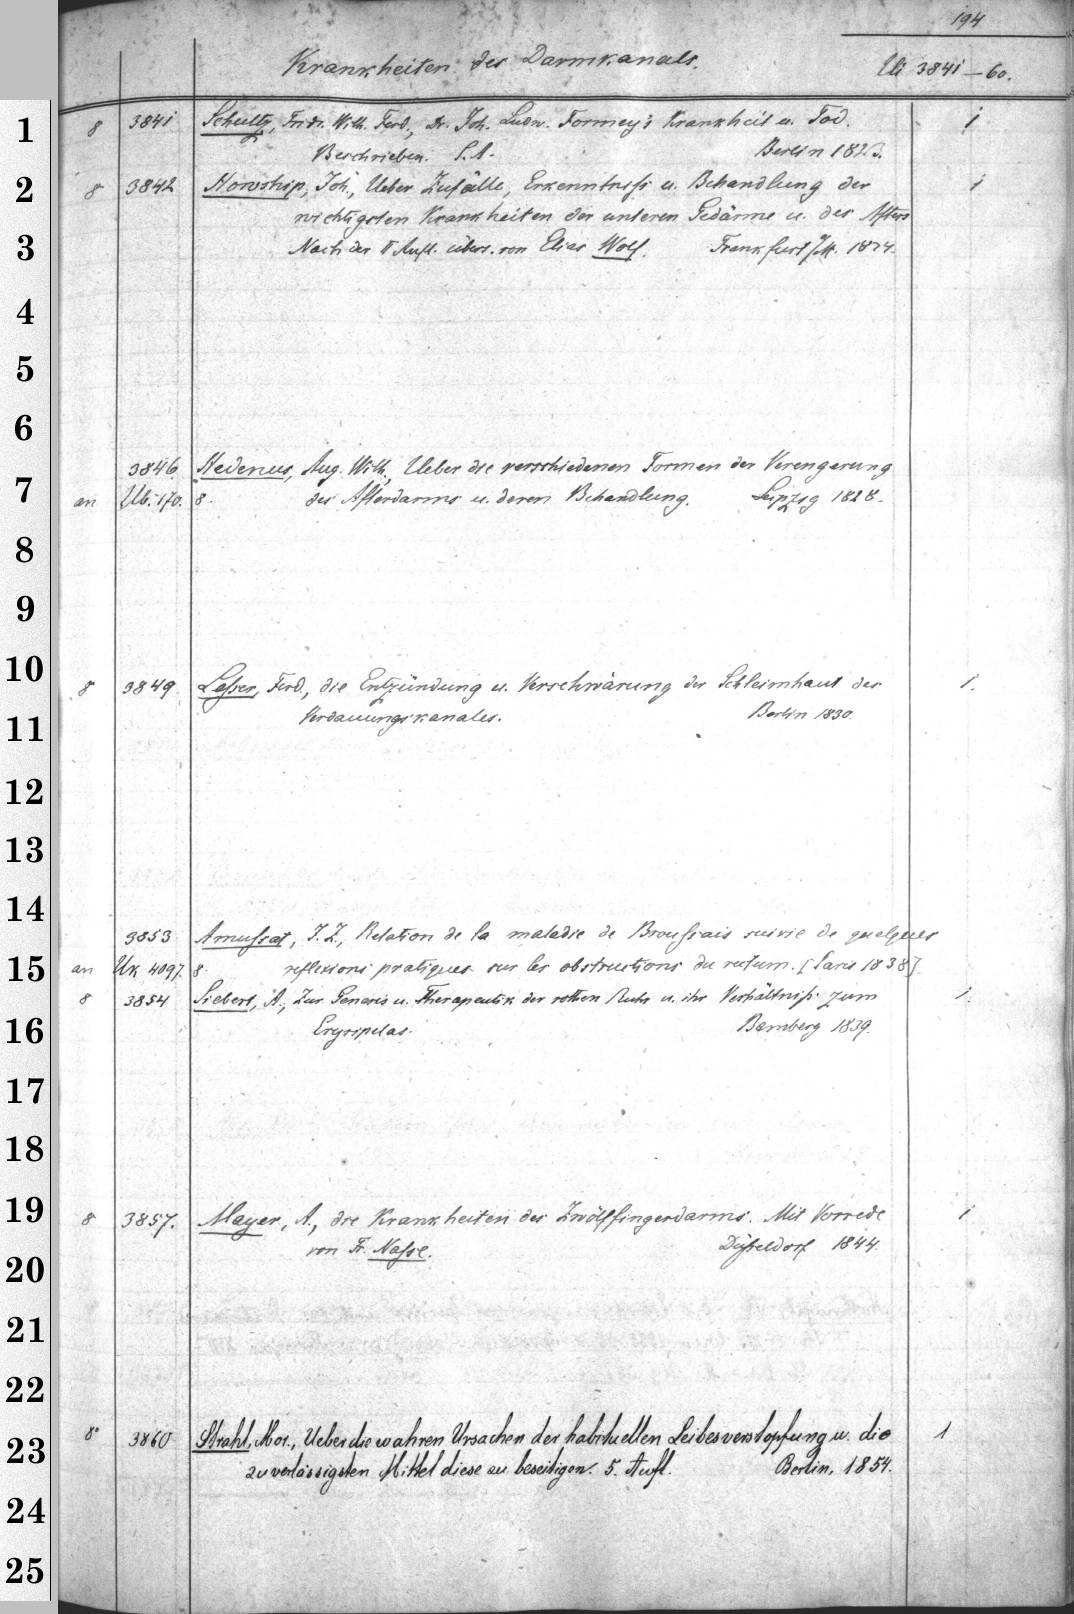 194
Krankheiten des Darmkanals. Ui 3841-60.
1 8 3841 Schultz, Fridr. Wilh. Ferd., Dr. Joh. Ludw. Formey's Krankheit u. Tod. 1
Beschrieben. S. A. Berlin 1823.
2 8 3842 Howship, Joh., Ueber Zufälle, Erkenntniß u. Behandlung der 1
wichtigsten Krankheiten der unteren Gedärme u. des Afters
3 Nach der II Aufl. übers. von Elias Wolf. Frankfurt /M. 1824.
4
5
6
3846. Hedenus, Aug. Wilh., Ueber die verschiedenen Formen der Verengerung
7 an Ub. 170. 8. des Afterdarms u. deren Behandlung. Leipzig 1828.
8
9
10
8 3849 Lesser, Ferd., die Entzündung u. Verschwärung der Schleimhaut des 1.
11 Verdauungskanales. Berlin 1830.
12
13
14
3853 Amussat, J. Z., Relation de la maladie de Broussais suivie de quelques
15 an Uk 4097. 8. reflexions pratiques sur les obstructions du rectum. [Paris 1838]
8 3854 Siebert, A., Zur Genesis u. Therapeutik der rothen Ruhr u. ihr Verhältniß zum 1.
16 Erysipelas. Bamberg 1839.
17
18
19 8 3857. Mayer, A., die Krankheiten des Zwölffingerdarms. Mit Vorrede 1
von Fr. Nasse. Düsseldorf 1844.
20
21
22
23 8° 3860 Strahl, Mor., Ueber die wahren Ursachen der habituellen Leibesverstopfung u. die 1
zuverlässigsten Mittel diese zu beseitigen. 5. Aufl. Berlin, 1854.
24
25